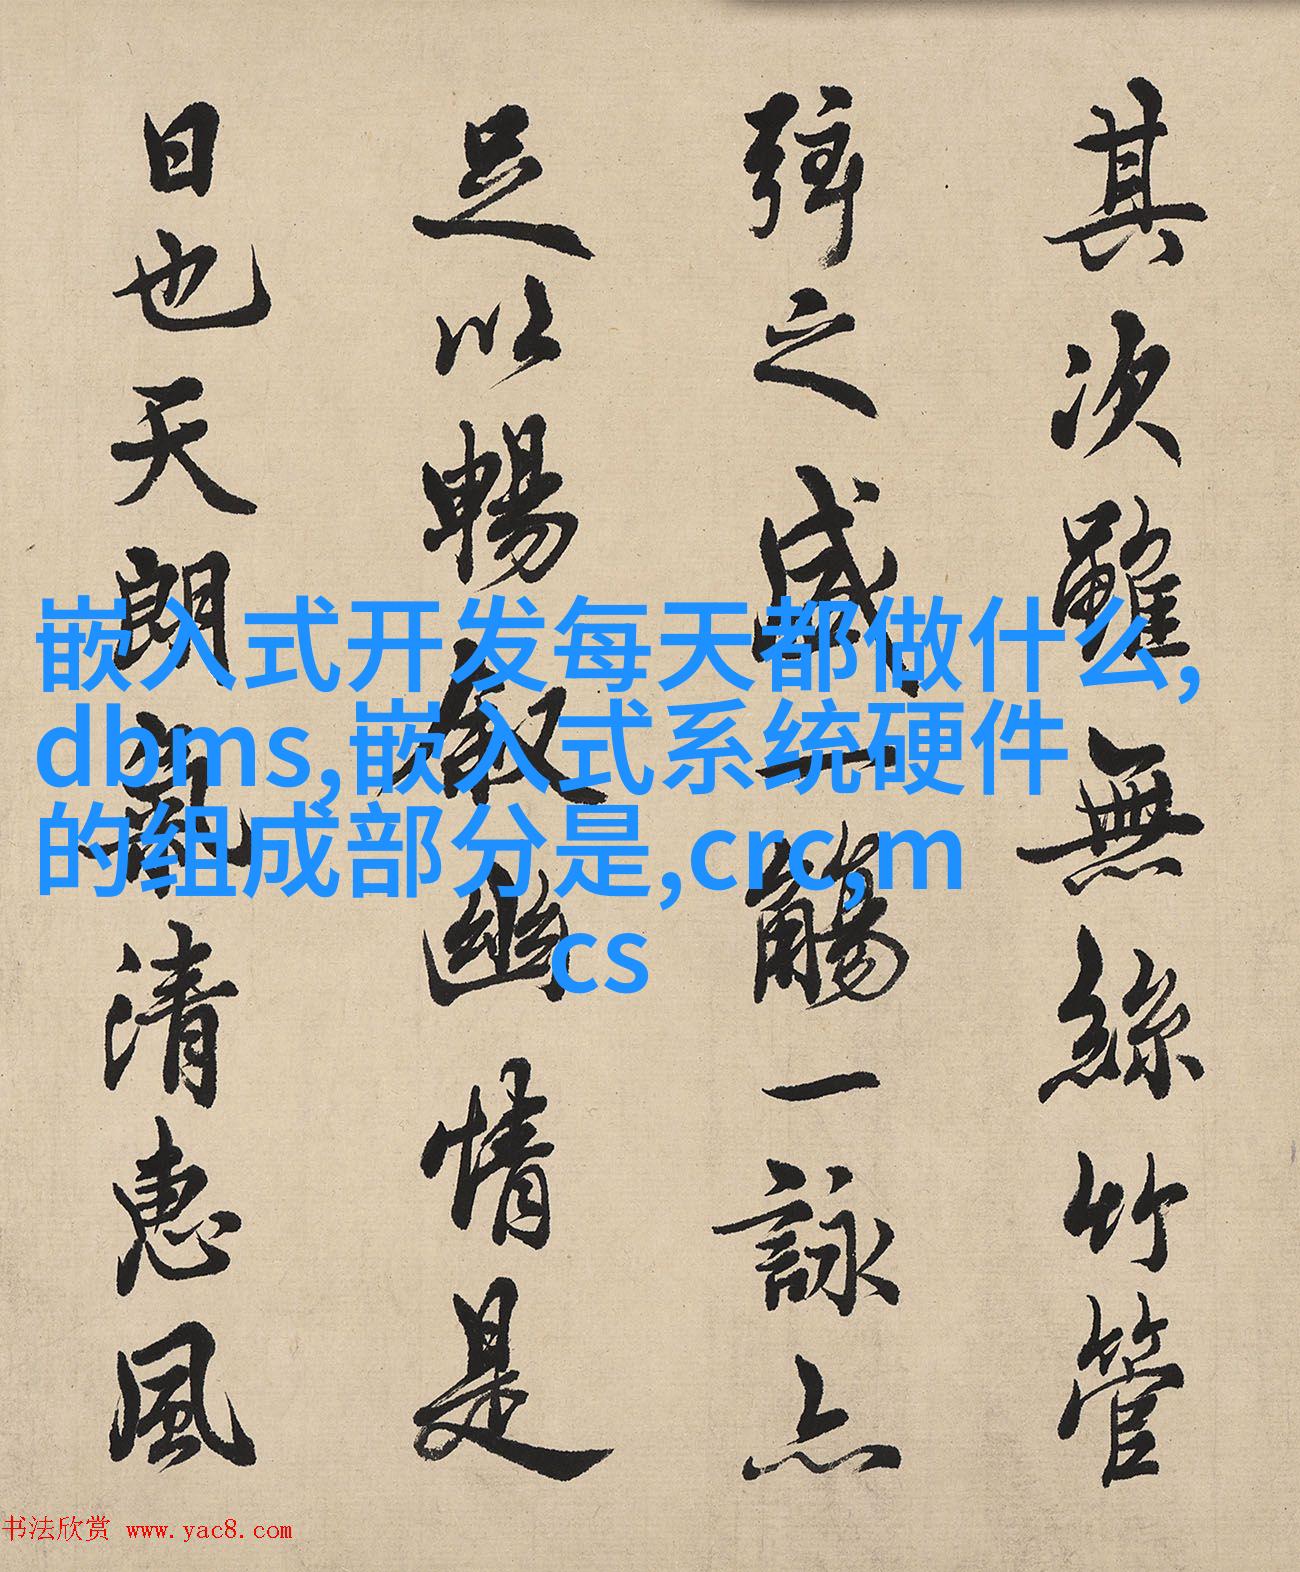 其次雖無絲竹管
弦之盛一觴一詠亦
足以暢叙幽情是
日也天朗氣清惠風
嵌入式开发每天都做什么,
dbms,嵌入式系统硬件
的组成部分是,crc,m
cs
书法欣赏 www.yac8.com